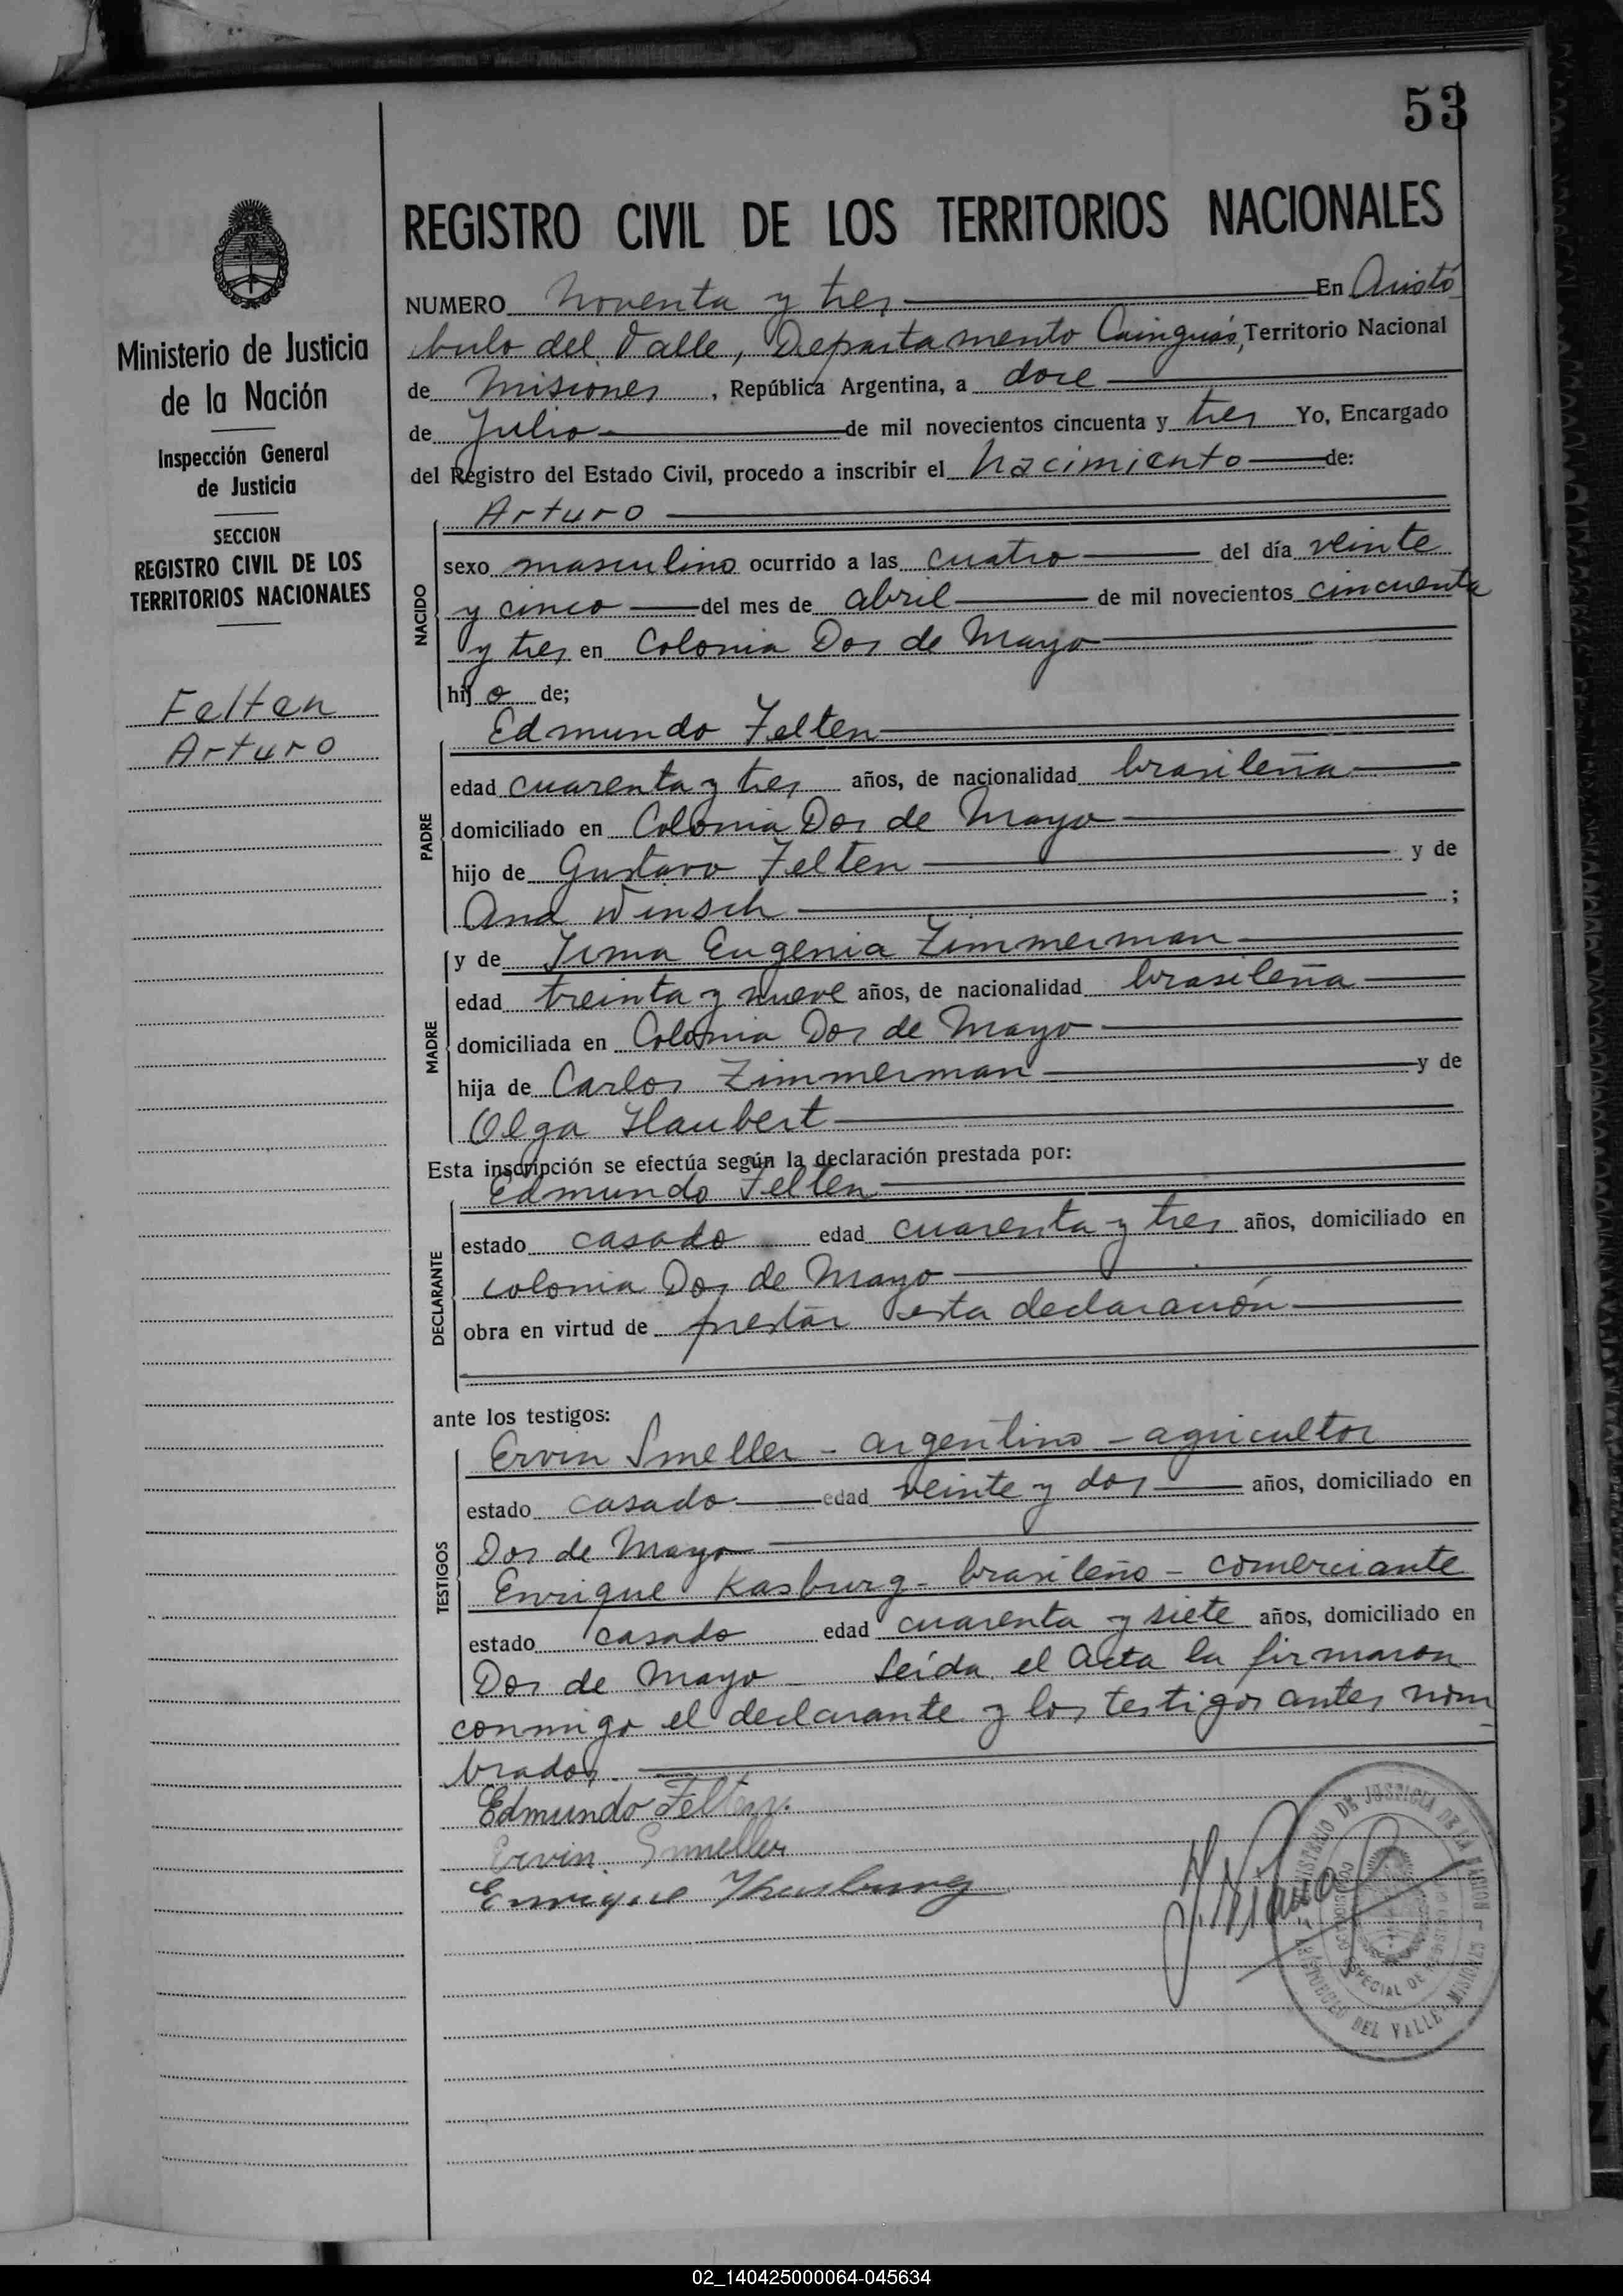 53
REGISTRO CIVIL DE LOS TERRITORIOS NACIONALES
Ministerio de Justicia
de la Nación
Inspección General
de Justicia
SECCION
REGISTRO CIVIL DE LOS
TERRITORIOS NACIONALES
Felten
Arturo
NUMERO Noventa y tres En Aristó
bulo del Valle, Departamento Cainguás, Territorio Nacional
de Misiones, República Argentina, a doce
de Julio de mil novecientos cincuenta y tres Yo, Encargado
del Registro del Estado Civil, procedo a inscribir el Nacimiento de:
Arturo
NACIDO
sexo masculino ocurrido a las cuatro del día veinte
y cinco del mes de abril de mil novecientos cincuenta
y tres en Colonia Dos de Mayo
hijo de;
Edmundo Felten
PADRE
edad cuarenta y tres años, de nacionalidad brasileña
domiciliado en Colonia Dos de Mayo
hijo de Gustavo Felten y de
Ana Winsch;
y de Irma Eugenia Zimmerman
MADRE
edad treinta y nueve años, de nacionalidad brasileña
domiciliada en Colonia Dos de Mayo
hija de Carlos Zimmerman y de
Olga Haubert
Esta inscripción se efectúa según la declaración prestada por:
Edmundo Felten
DECLARANTE
estado casado edad cuarenta y tres años, domiciliado en
colonia Dos de Mayo
obra en virtud de prestar esta declaración
ante los testigos:
Ervin Smeller - argentino - agricultor
TESTIGOS
estado casado edad veinte y dos años, domiciliado en
Dos de Mayo
Enrique Kasburg - brasileño - comerciante
estado casado edad cuarenta y siete años, domiciliado en
Dos de Mayo - Leída el Acta la firmaron
conmigo el declarante y los testigos antes nom
brados.
Edmundo Felten.
Ervin Smeller
Enrique Kasburg
MINISTERIO DE JUSTICIA DE LA NACION
ESPECIAL DE
ARISTOBULO DEL VALLE - MISIONES
02_140425000064-045634